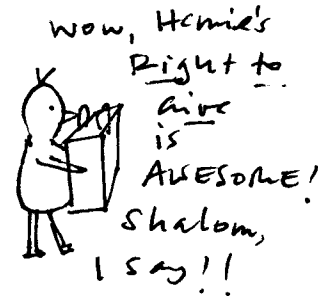 wow,
Right to
Give
is
AWESOME!
Shalom,
I say!!